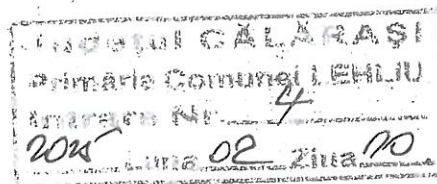 Județul CĂLĂRAȘI
Primăria Comunei LEHLIU
Intrare Nr. 4
Luna 02 Ziua 20